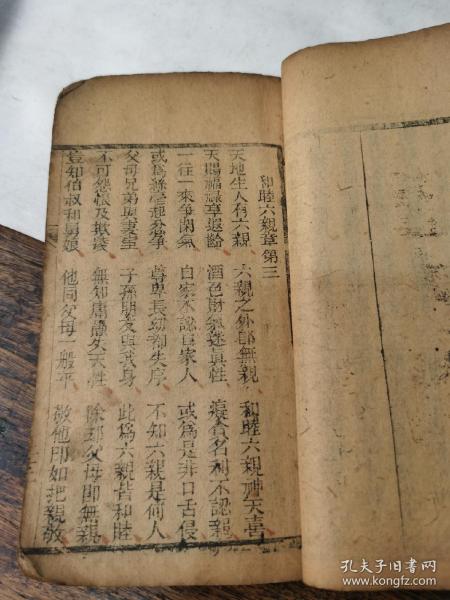 和睦六親章第三
天地生人有六親 六親之外卽無親 和睦六親神天喜
天賜福祿享遐齡 酒色財氣迷眞性 癡貪名利不認親
一往一來爭閑氣 自家不認自家人 或爲是非口舌侵
或爲絲毫起忿爭 尊卑長幼有生序 不知六親是何人
父母兄弟與妻室 子孫朋友與我身 此爲六親皆和睦
不可怨恨及欺淩 無知庸 失天性 除却父母卽無親
豈知伯叔和舅娘 他同父母一般平 敬他卽如把親敬
孔夫子旧书网
www.kongfz.com